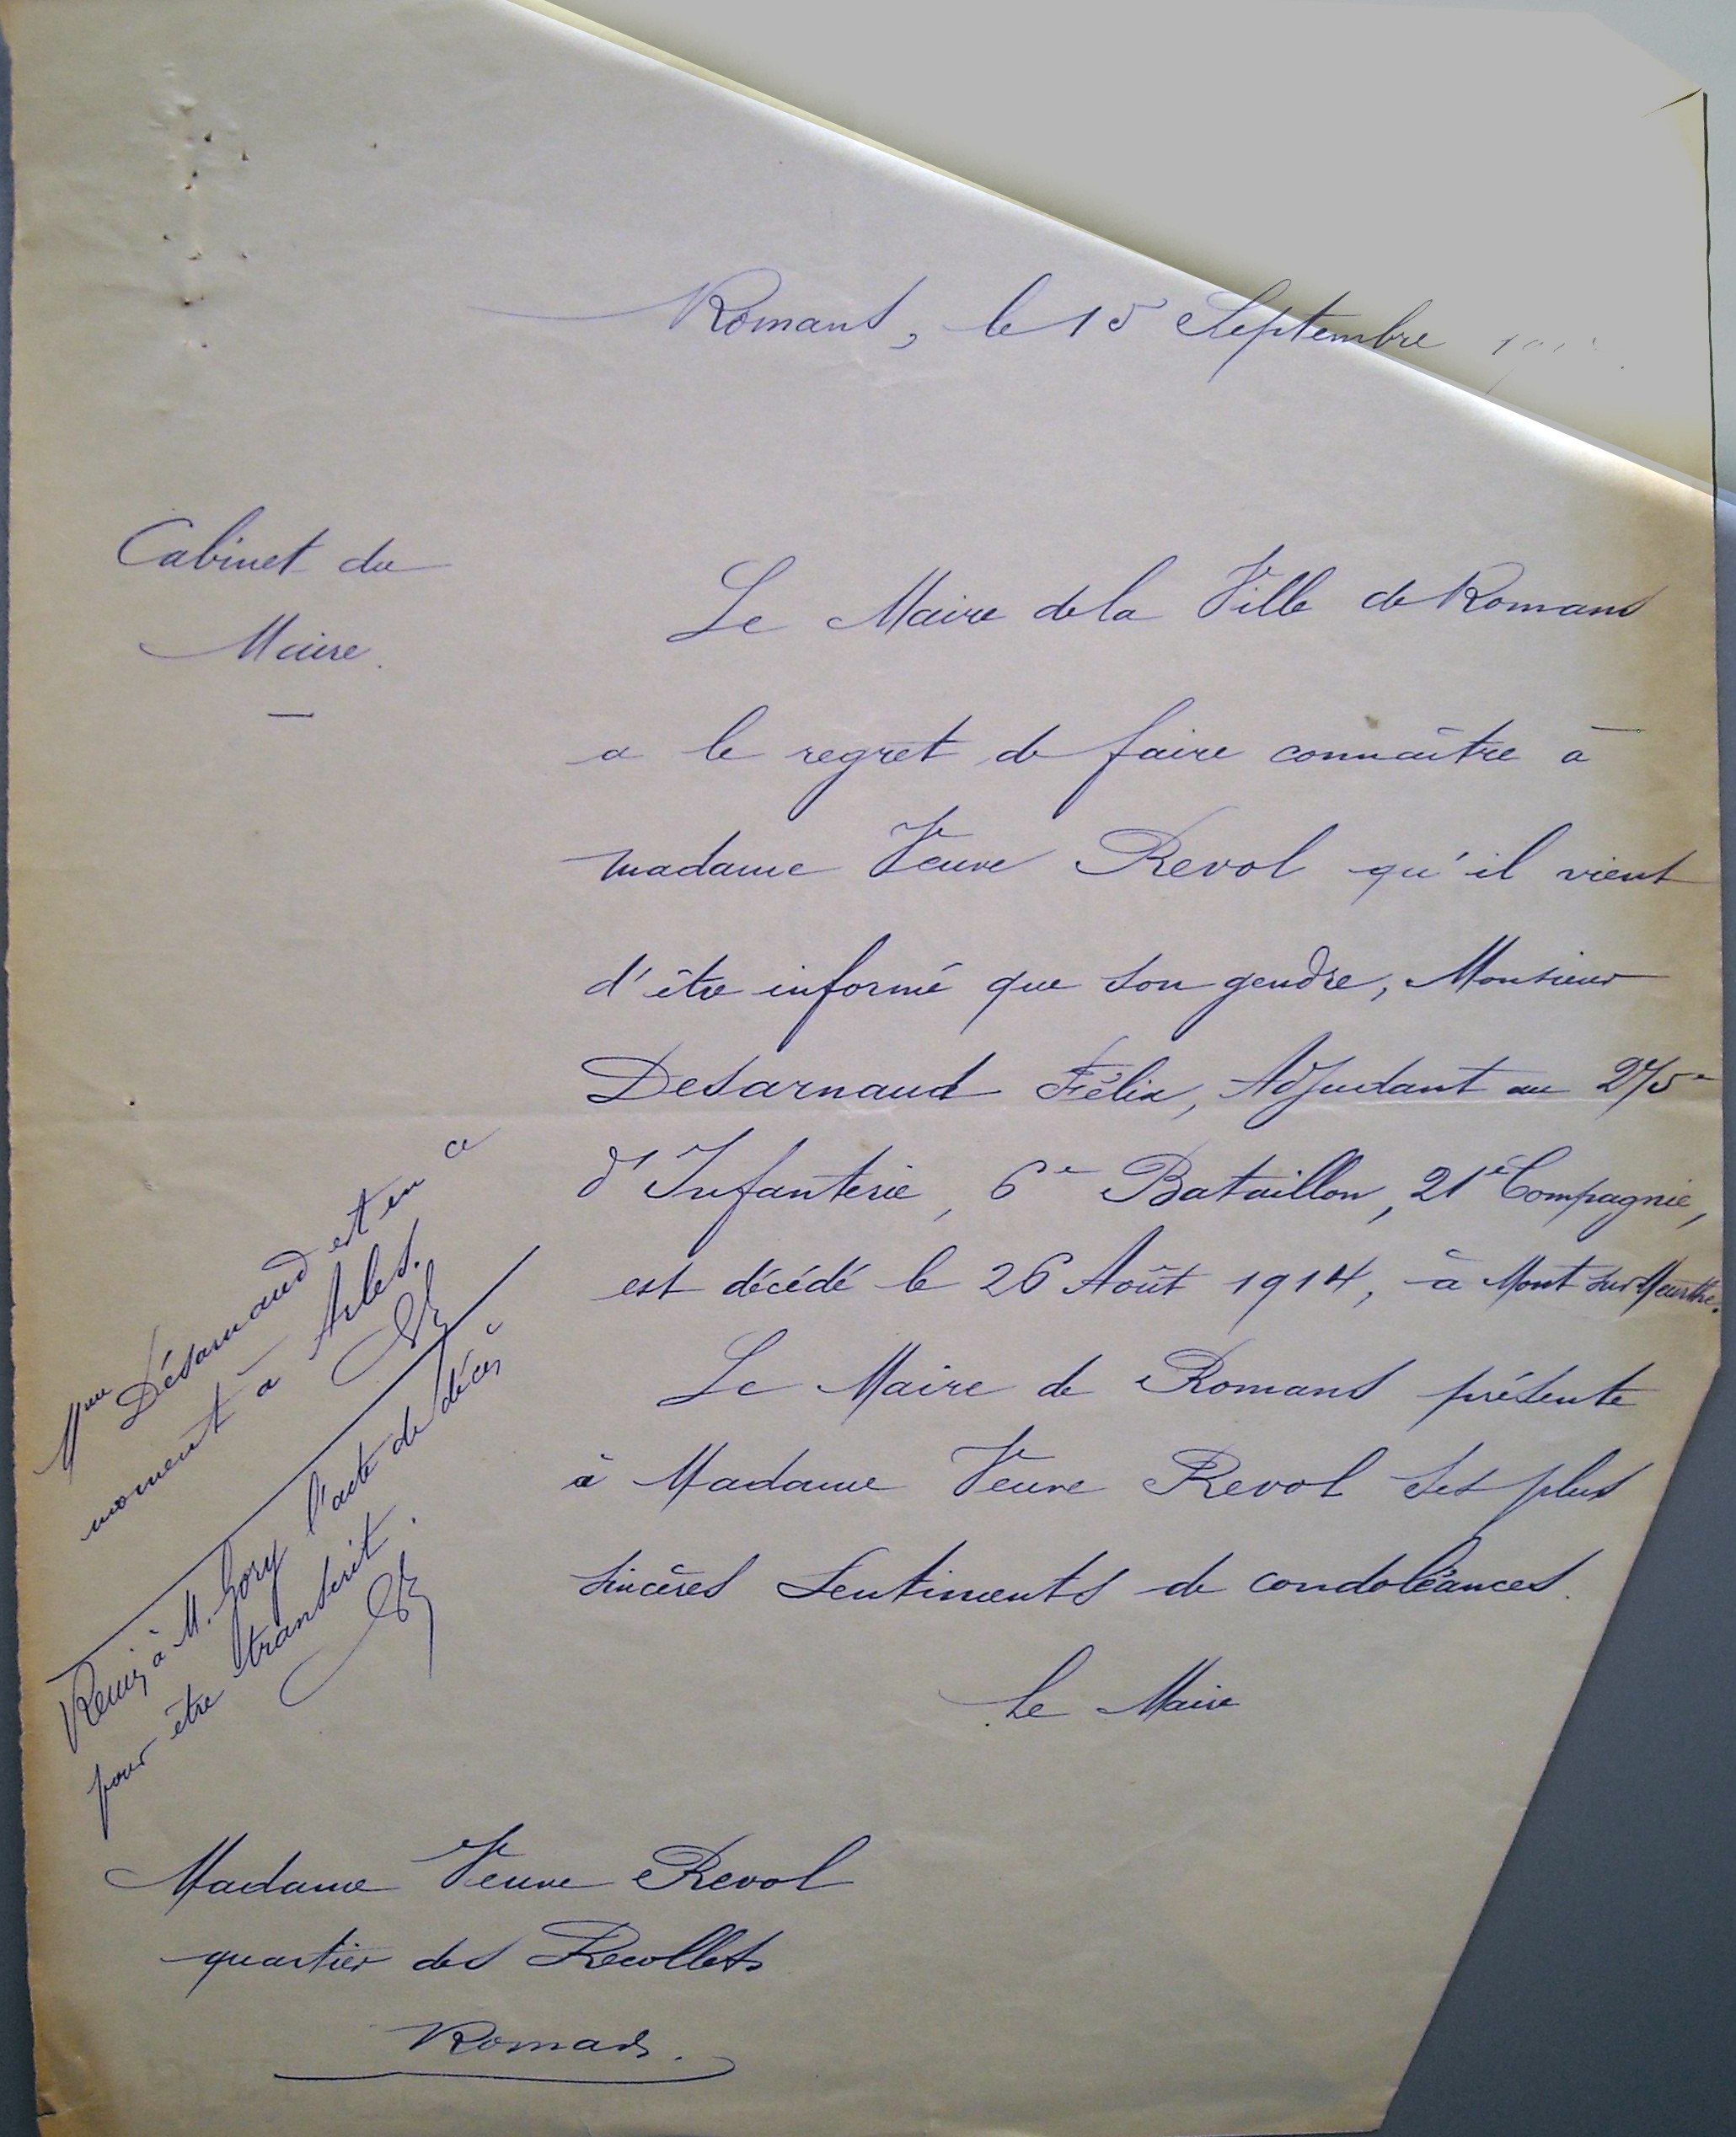 Romans, le 15 Septembre
Cabinet du
Maire.
Le Maire de la Ville de Romans
a le regret de faire connaître à
madame Veuve Revol qu'il vient
d'être informé que son gendre, Monsieur
Desarnaud Félix, Adjudant au 275e
d'Infanterie, 6e Bataillon, 21e Compagnie,
est décédé le 26 Août 1914, à Mont sur Meurthe.
Le Maire de Romans présente
à Madame Veuve Revol ses plus
sincères sentiments de condoléances.
Le Maire
Mme Désarnaud est en ce
moment à Arles.
Remis à M. Gory l'acte de décès
pour être transcrit.
Madame Veuve Revol
quartier des Récollets
Romans.